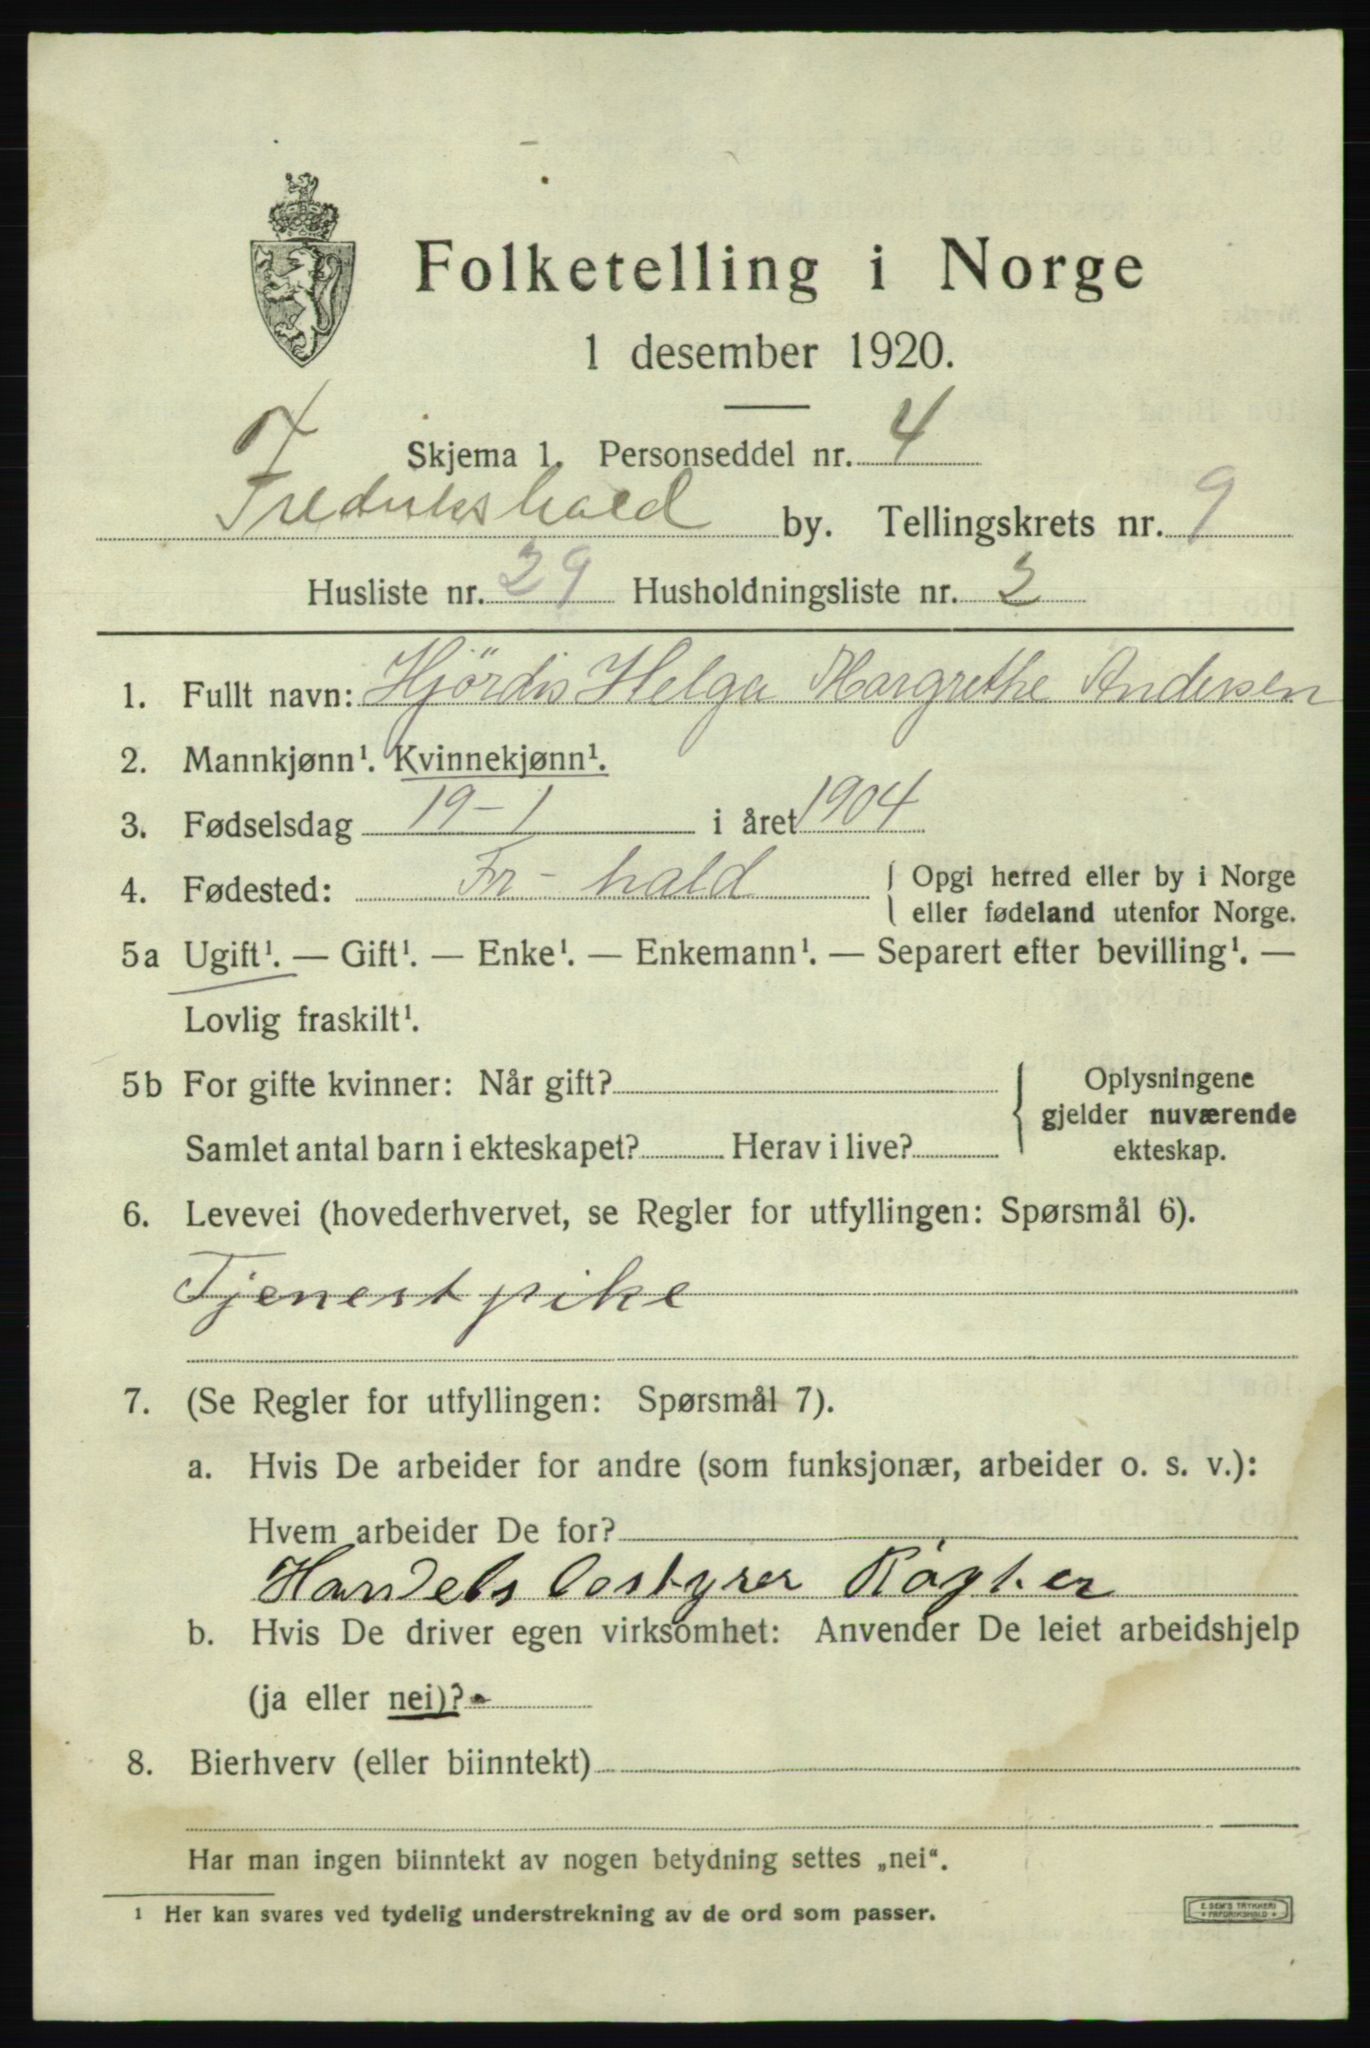 Folketelling i Norge
1 desember 1920.
Skjema 1. Personseddel nr. 4
Fredrikshald by. Tellingskrets nr. 9
Husliste nr. 29 Husholdningsliste nr. 2
1. Fullt navn: Hjördis Helga Margrethe Andersen
2. Mannkjønn¹. Kvinnekjønn¹.
3. Fødselsdag 19-1 i året 1904
4. Fødested: Fr-hald { Opgi herred eller by i Norge
eller fødeland utenfor Norge.
5a Ugift¹. — Gift¹. — Enke¹. — Enkemann¹. — Separert efter bevilling¹. —
Lovlig fraskilt¹.
5b For gifte kvinner: Når gift? { Oplysningene
gjelder nuværende
Samlet antal barn i ekteskapet? Herav i live? ekteskap.
6. Levevei (hovederhvervet, se Regler for utfyllingen: Spørsmål 6).
Tjenestpike
7. (Se Regler for utfyllingen: Spørsmål 7).
a. Hvis De arbeider for andre (som funksjonær, arbeider o. s. v.):
Hvem arbeider De for?
Handelsbestyrer
b. Hvis De driver egen virksomhet: Anvender De leiet arbeidshjelp
(ja eller nei)?
8. Bierhverv (eller biinntekt)
Har man ingen biinntekt av nogen betydning settes „nei“.
¹ Her kan svares ved tydelig understrekning av de ord som passer.
E. SEM'S TRYKKERI
FREDRIKSHALD